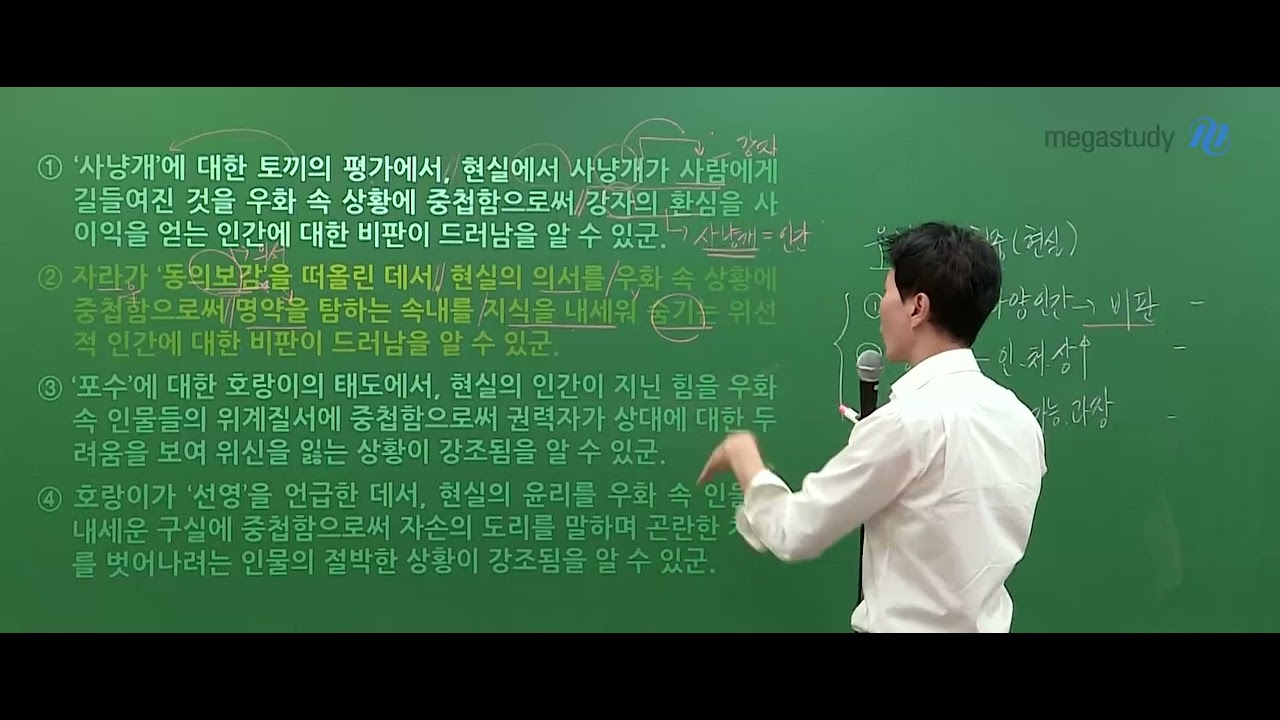 megastudy
강자
① ‘사냥개’에 대한 토끼의 평가에서, 현실에서 사냥개가 사람에게
길들여진 것을 우화 속 상황에 중첩함으로써 강자의 환심을 사
이익을 얻는 인간에 대한 비판이 드러남을 알 수 있군.
사냥개 = 인간
의서
② 자라가 ‘동의보감’을 떠올린 데서, 현실의 의서를 우화 속 상황에
중첩함으로써 명약을 탐하는 속내를 지식을 내세워 숨기는 위선
적 인간에 대한 비판이 드러남을 알 수 있군.
③ ‘포수’에 대한 호랑이의 태도에서, 현실의 인간이 지닌 힘을 우화
속 인물들의 위계질서에 중첩함으로써 권력자가 상대에 대한 두
려움을 보여 위신을 잃는 상황이 강조됨을 알 수 있군.
④ 호랑이가 ‘선영’을 언급한 데서, 현실의 윤리를 우화 속
내세운 구실에 중첩함으로써 자손의 도리를 말하며 곤란한
를 벗어나려는 인물의 절박한 상황이 강조됨을 알 수 있군.
(현실)
인간 → 비판
과장